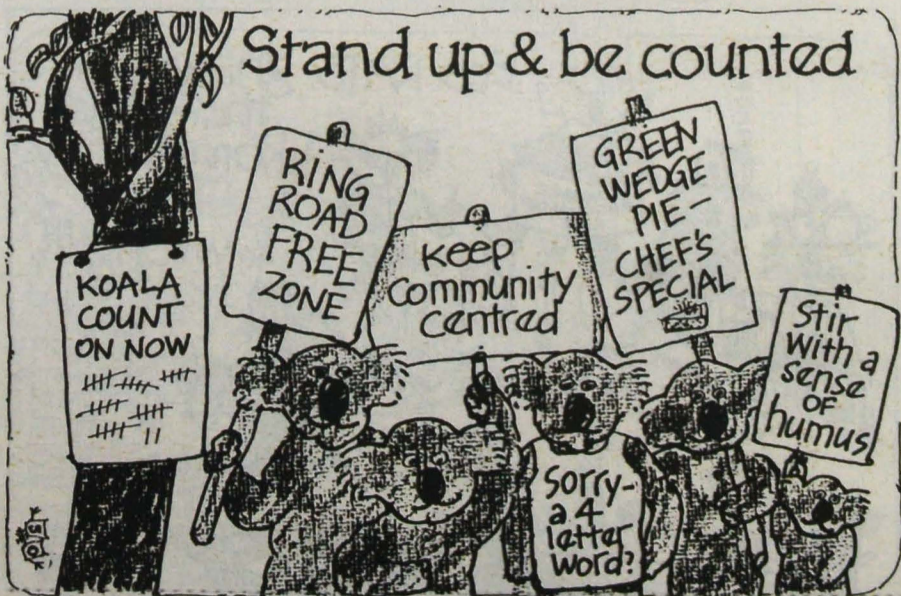 Stand up & be counted
KOALA
COUNT
ON NOW
RING
ROAD
FREE
ZONE
Keep
Community
Centred
GREEN
WEDGE
PIE-
CHEF'S
SPECIAL
Stir
with a
sense
OF
humus
Sorry-
a 4
letter
word?